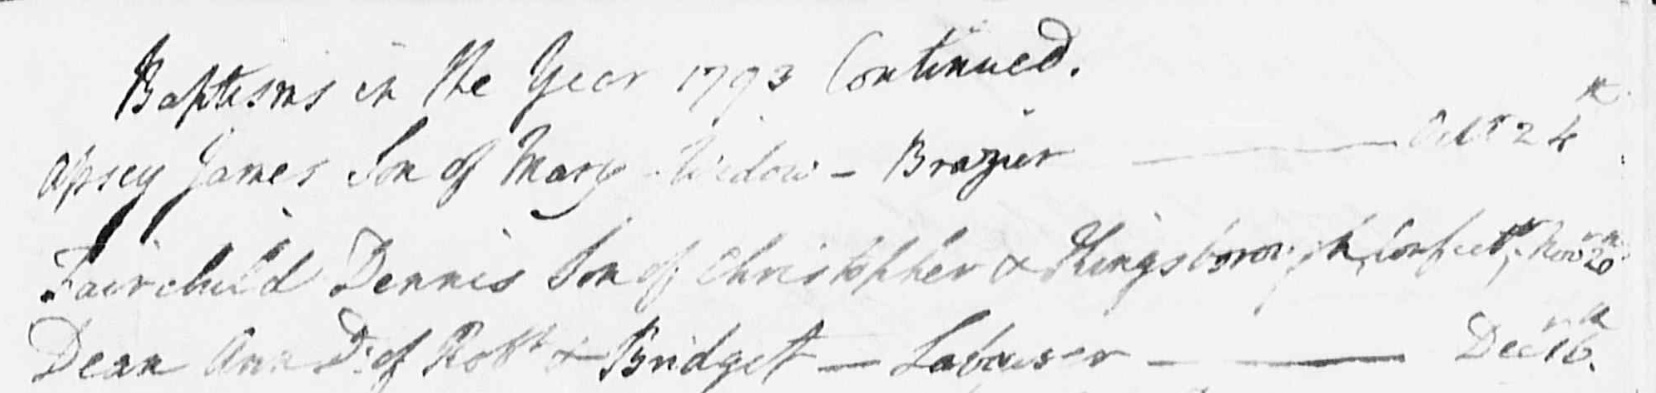 Baptisms in the Year 1793 Continued.
Apsey James Son of Mary Widow - Brazier — Octr 24th
Fairchild Dennis Son of Christopher & Kingsborough, Confectr, Novr 20th
Dean Ann Dr of Robt & Bridgett — Labourer — Decr 16th